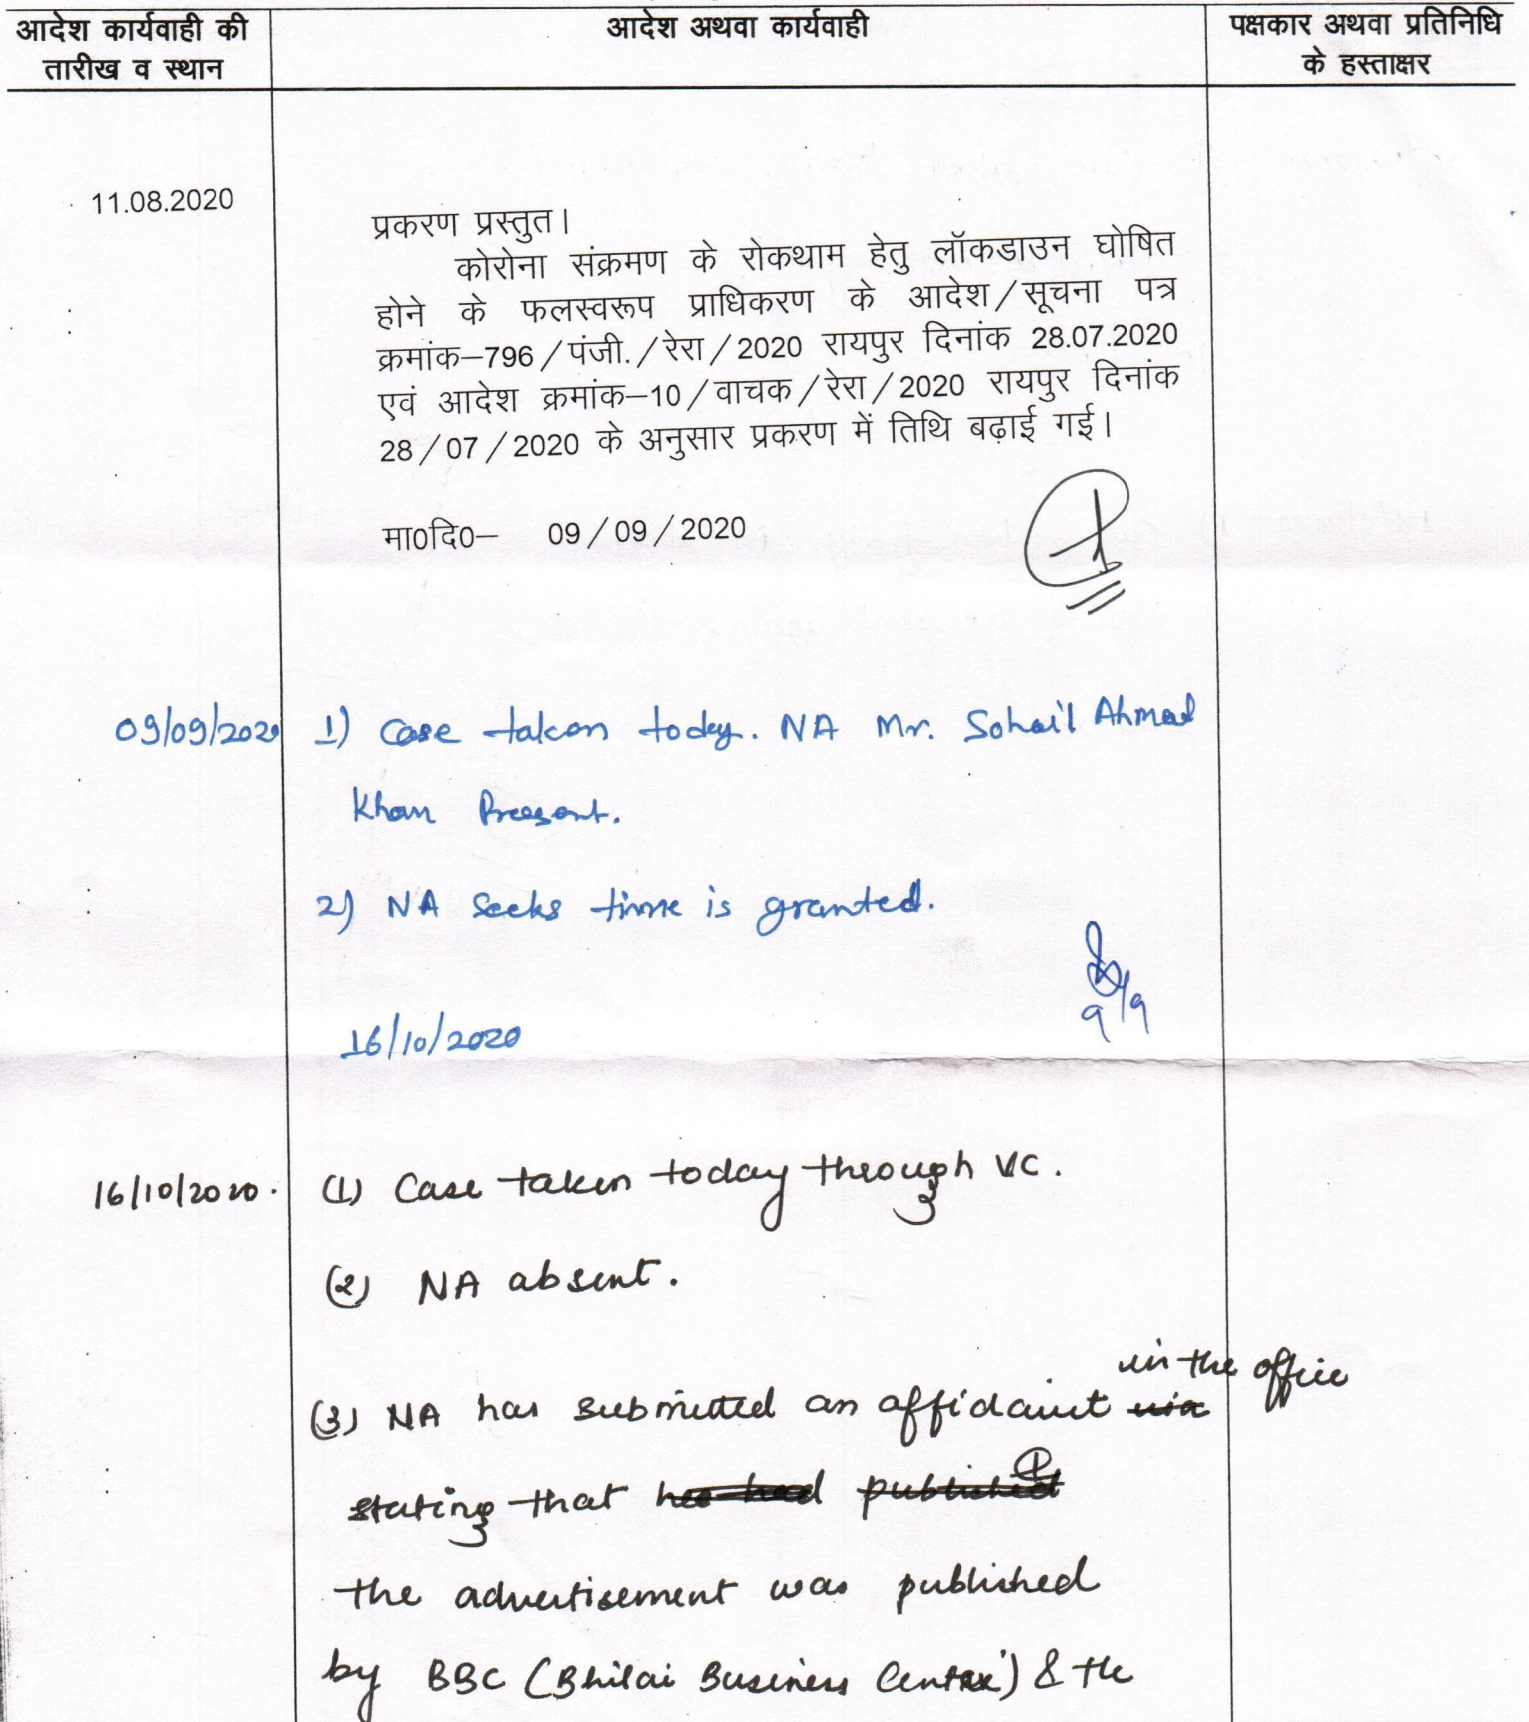 आदेश कार्यवाही की
तारीख व स्थान
आदेश अथवा कार्यवाही
पक्षकार अथवा प्रतिनिधि
के हस्ताक्षर
11.08.2020
प्रकरण प्रस्तुत।
कोरोना संक्रमण के रोकथाम हेतु लॉकडाउन घोषित
होने के फलस्वरूप प्राधिकरण के आदेश/सूचना पत्र
क्रमांक–796/पंजी./रेरा/2020 रायपुर दिनांक 28.07.2020
एवं आदेश क्रमांक–10/वाचक/रेरा/2020 रायपुर दिनांक
28/07/2020 के अनुसार प्रकरण में तिथि बढ़ाई गई।
मा0दि0– 09/09/2020
09/09/2020 1) Case taken today. NA Mr. Sohail Ahmad
Khan Present.
2) NA Seeks time is granted.
9/9
16/10/2020
16/10/2020. (1) Case taken today through VC.
(2) NA absent.
in the office
(3) NA has submitted an affidavit via
stating that he had published
the advertisement was published
by BBC (Bhilai Business Centre) & the